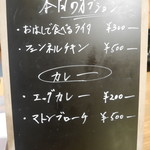 本日のオプション
・おはしで食べるライタ ¥300ー
・フェンネルチキン ¥500ー
カレー
・エッグカレー ¥200ー
・マトンブローケ ¥500ー